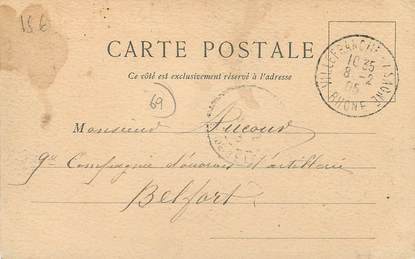 15€
CARTE POSTALE
Ce côté est exclusivement réservé à l'adresse
VILLEFRANCHE-S-SAONE
10 35
8 -2
05
RHONE
69
Monsieur
9e Compagnie d'ouvriers d'artillerie
Belfort